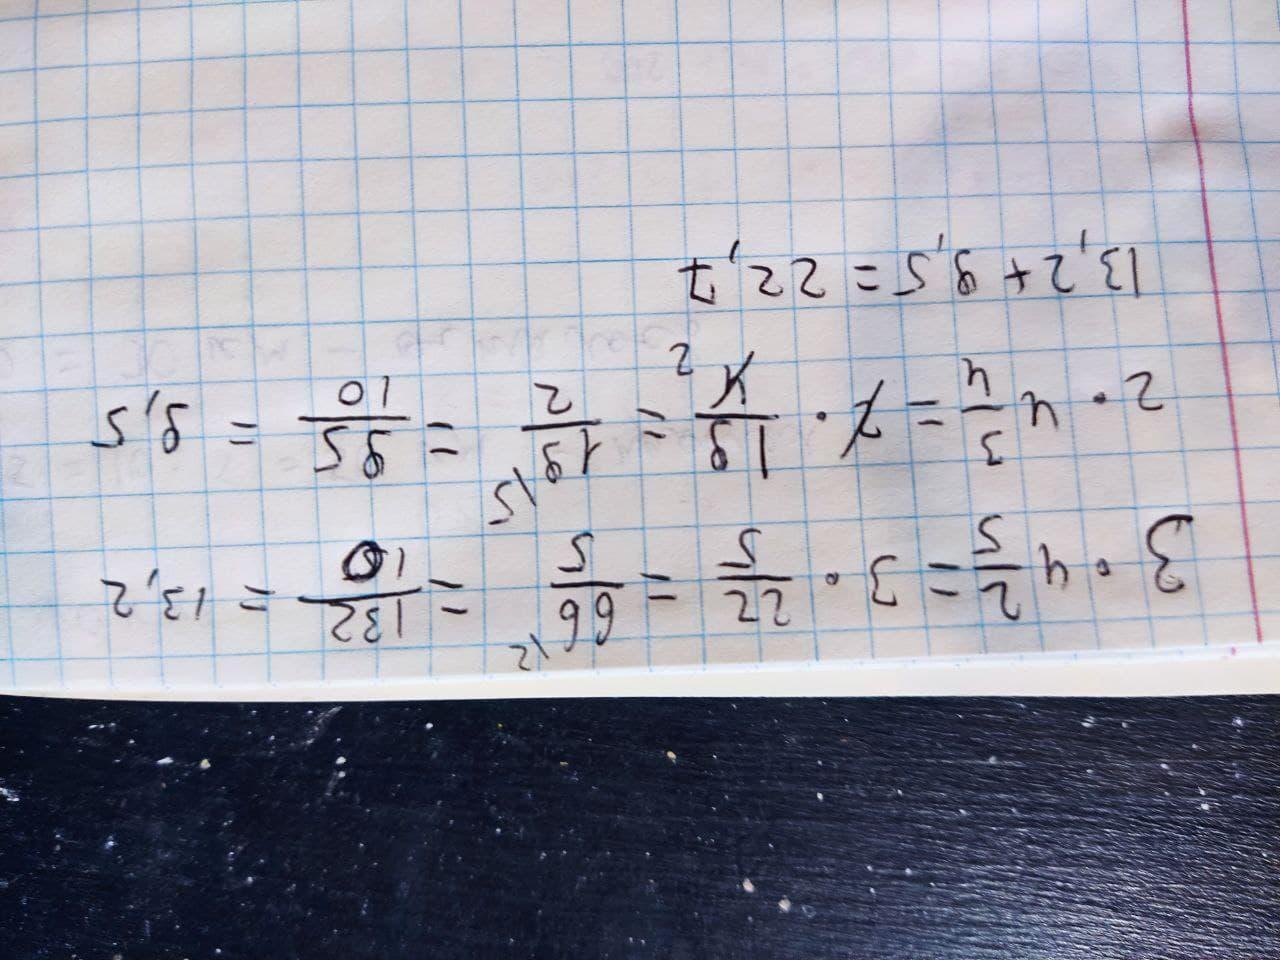 3 · 4 2/5 = 3 · 22/5 = 66\2/5 = 132/10 = 13,2
2 · 4 3/4 = 2 · 19/4 2 = 19\5/2 = 95/10 = 9,5
13,2 + 9,5 = 22,7